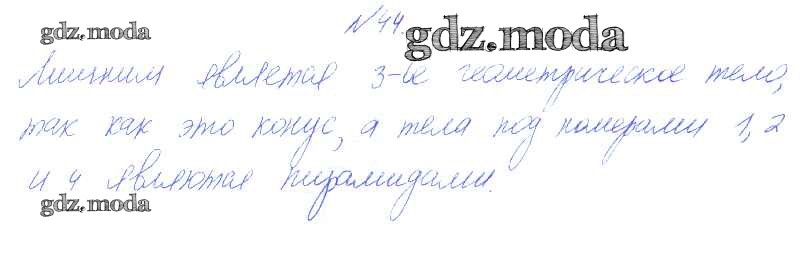 №44.
gdz.moda gdz.moda
Лишним является 3-ье геометрическое тело,
так как это конус, а тела под номерами 1, 2
и 4 являются пирамидами.
gdz.moda